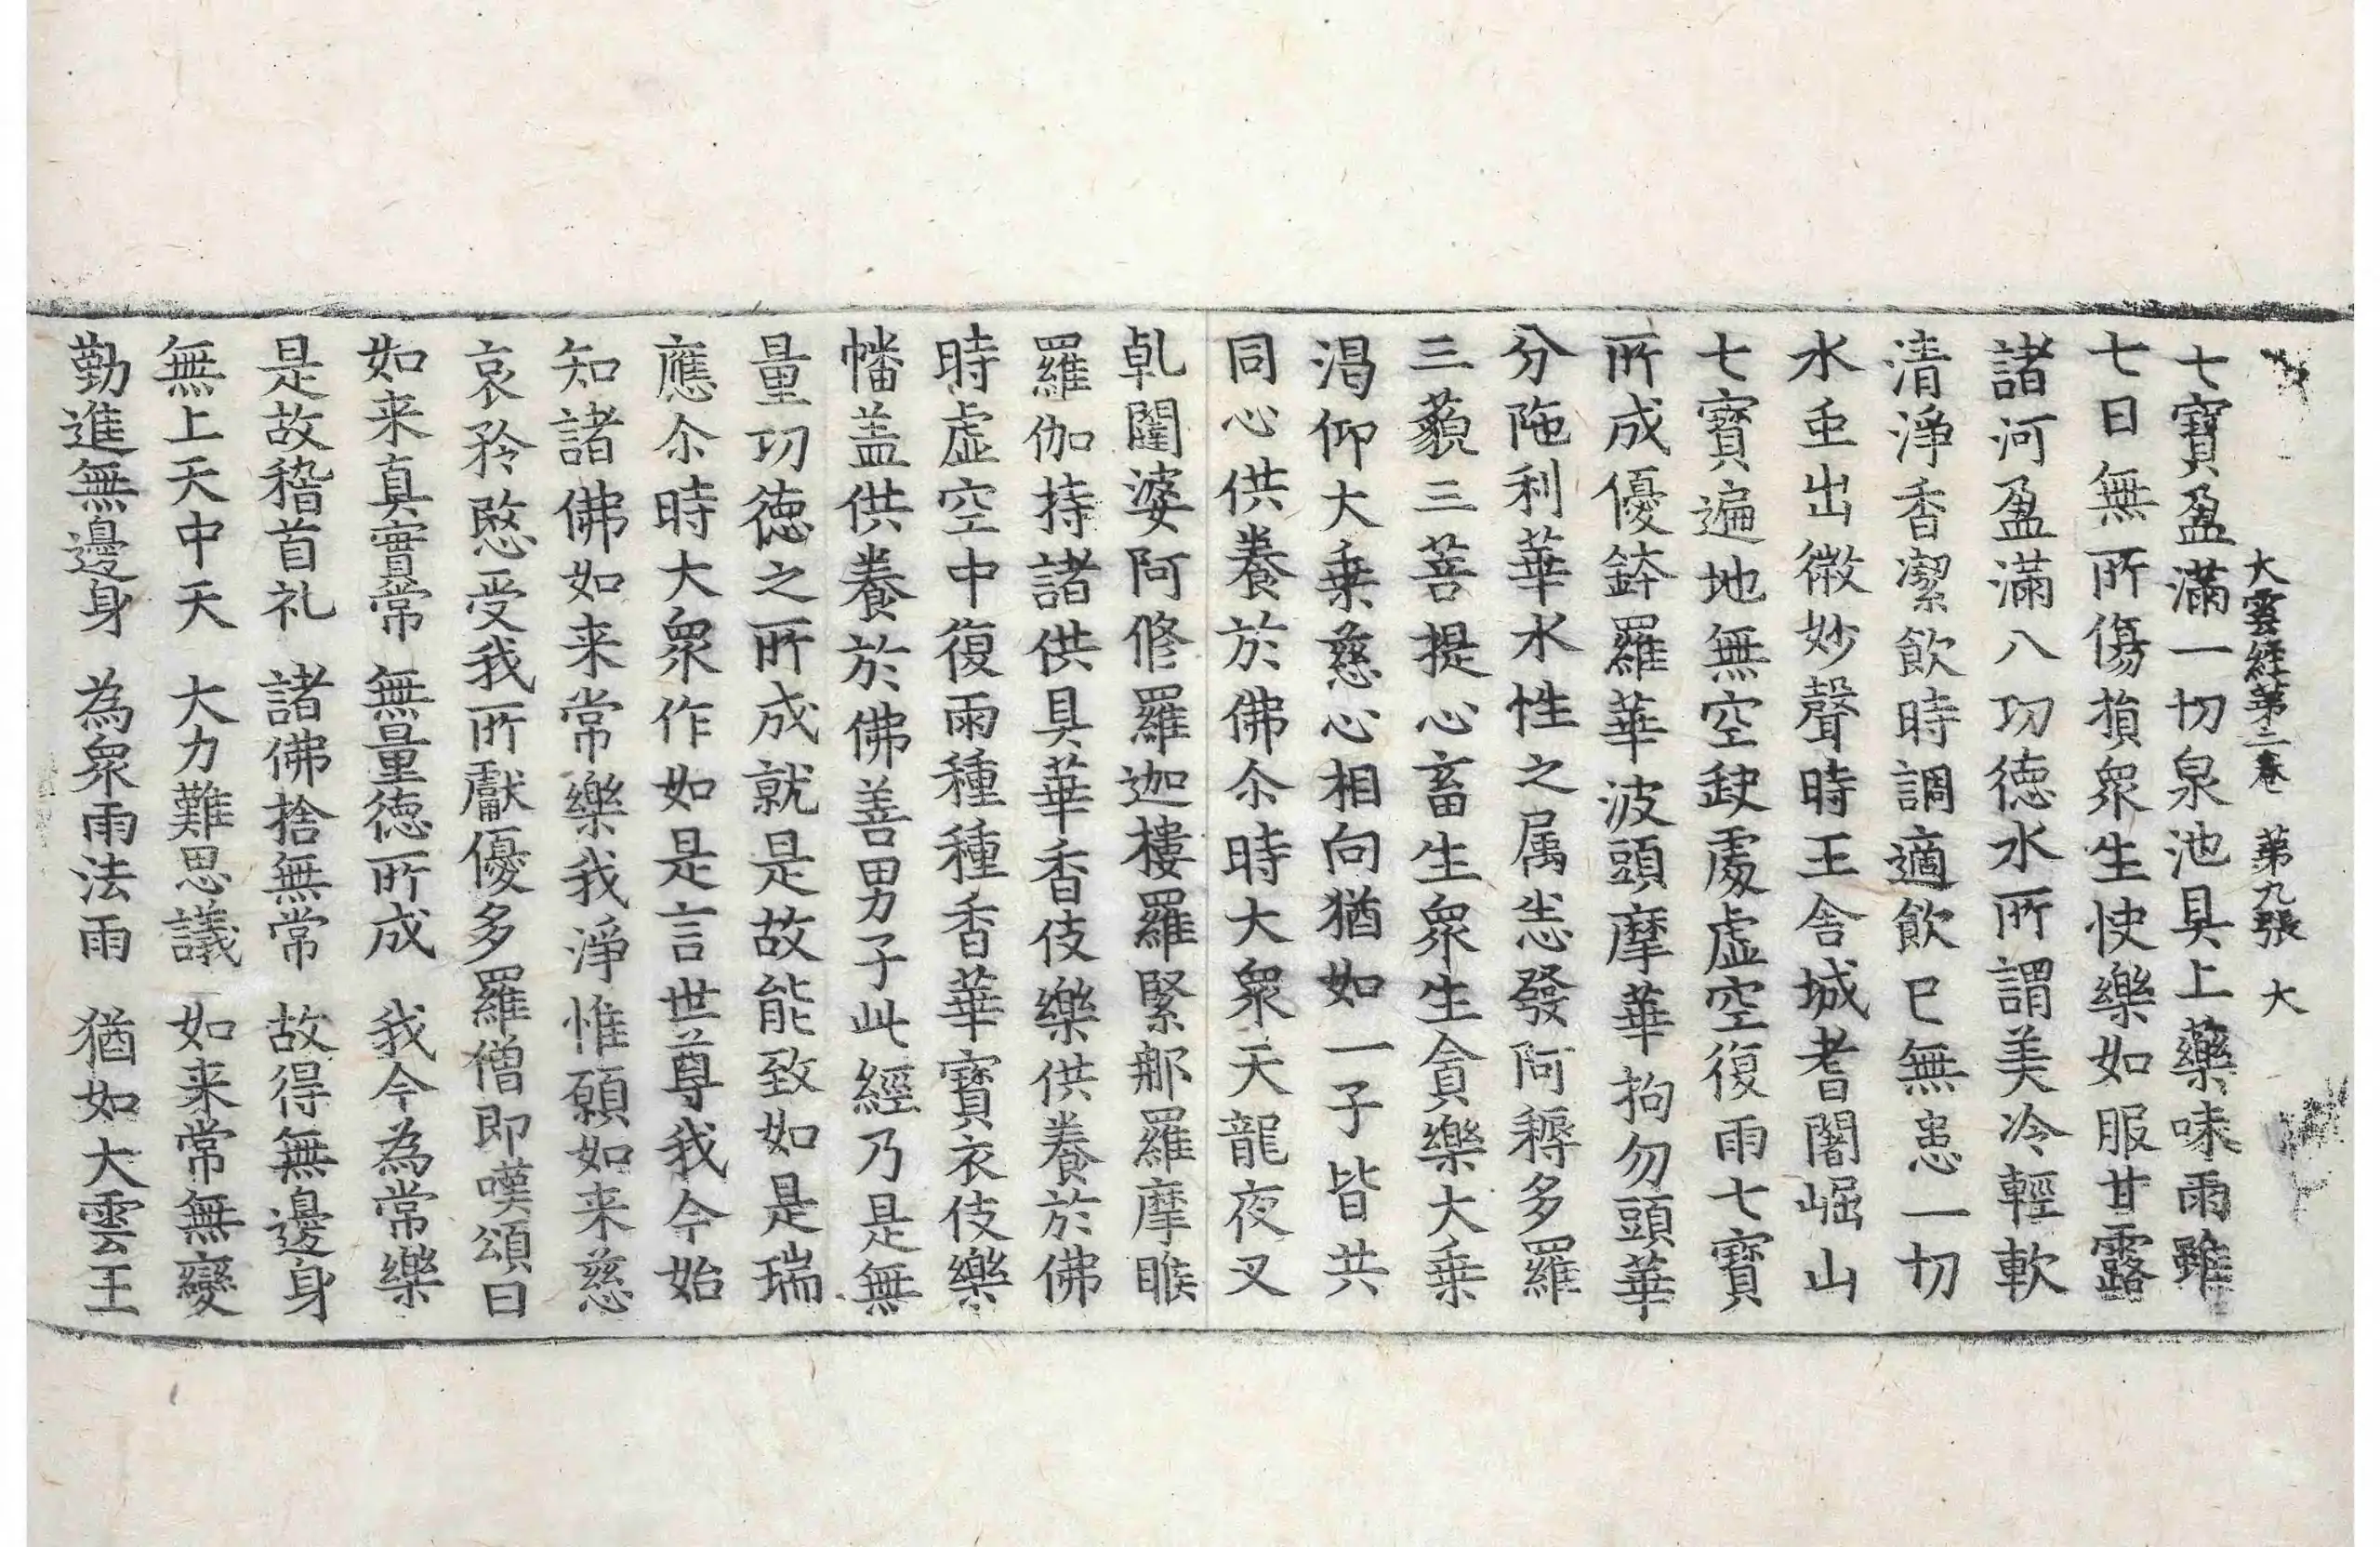 大雲經第二卷 第九張 大
七寶盈滿一切泉池具上藥味雨雖
七日無所傷損衆生快樂如服甘露
諸河盈滿八功德水所謂美冷輕軟
清淨香潔飲時調適飲已無患一切
水重出微妙聲時王舍城耆闍崛山
七寶遍地無空缺處虛空復雨七寶
所成優鉢羅華波頭摩華拘勿頭華
分陁利華水性之属悉發阿耨多羅
三藐三菩提心畜生衆生貪樂大乗
渴仰大乗慈心相向猶如一子皆共
同心供養於佛尒時大衆天龍夜叉
乹闥婆阿修羅迦樓羅緊那羅摩睺
羅伽持諸供具華香伎樂供養於佛
時虛空中復雨種種香華寶衣伎樂
幡盖供養於佛善男子此經乃是無
量功徳之所成就是故能致如是瑞
應尒時大衆作如是言世尊我今始
知諸佛如来常樂我淨惟願如来慈
哀矜愍受我所獻優多羅僧即嘆頌曰
如来真實常 無量徳所成 我今為常樂
是故稽首礼 諸佛捨無常 故得無邊身
無上天中天 大力難思議 如来常無變
勤進無邊身 為衆雨法雨 猶如大雲王